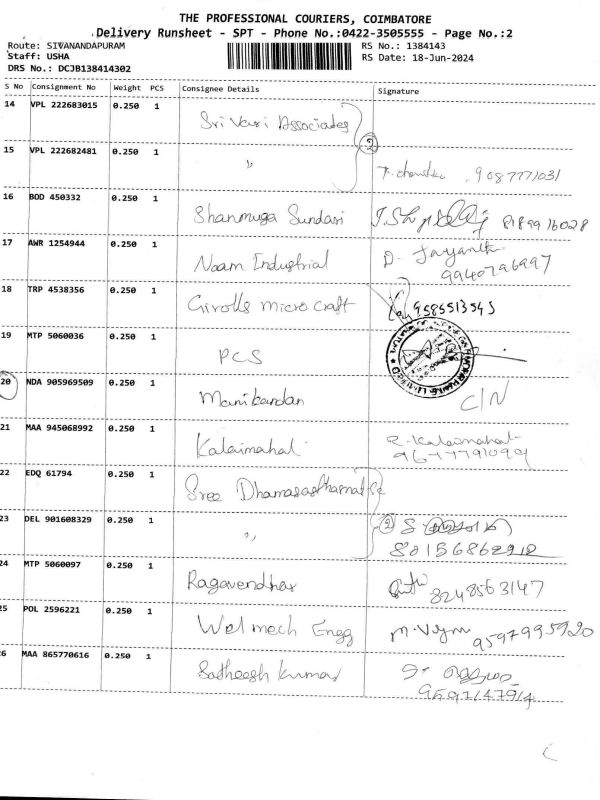 THE PROFESSIONAL COURIERS, COIMBATORE
Delivery Runsheet - SPT - Phone No.:0422-3505555 - Page No.:2
Route: SIVANANDAPURAM RS No.: 1384143
Staff: USHA RS Date: 18-Jun-2024
DRS No.: DCJB138414302
S No Consignment No Weight PCS Consignee Details Signature
14 VPL 222683015 0.250 1 Sri Vari Associates
2
15 VPL 222682481 0.250 1 " 9087771031
16 BOD 450332 0.250 1 Shanmuga Sundari 8189916028
17 AWR 1254944 0.250 1 Naam Industrial D. Jayanth
9940796997
18 TRP 4538356 0.250 1 Girolls micro craft 9585513543
19 MTP 5060036 0.250 1 PCS
20 NDA 905969509 0.250 1 Manikandan C/N
21 MAA 945068992 0.250 1 Kalaimahal R. Kalaimahal
22 EDQ 61794 0.250 1 Sree
23 DEL 901608329 0.250 1 " 2
24 MTP 5060097 0.250 1 Ragavendhar 8248563147
25 POL 2596221 0.250 1 Welmech Engg 9597995920
26 MAA 865770616 0.250 1 Satheesh kumar